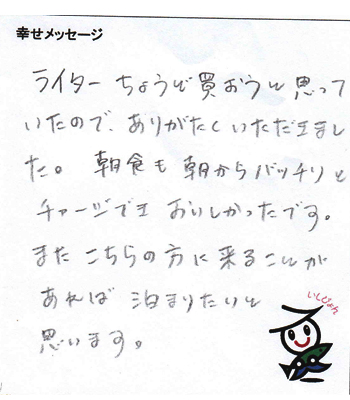 幸せメッセージ
ライター ちょうど買おうと思って
いたので、ありがたくいただきまし
た。 朝食も朝からバッチリと
チャージでき おいしかったです。
また こちらの方に来ることが
あれば 泊まりたいと
思います。
いしぴょん